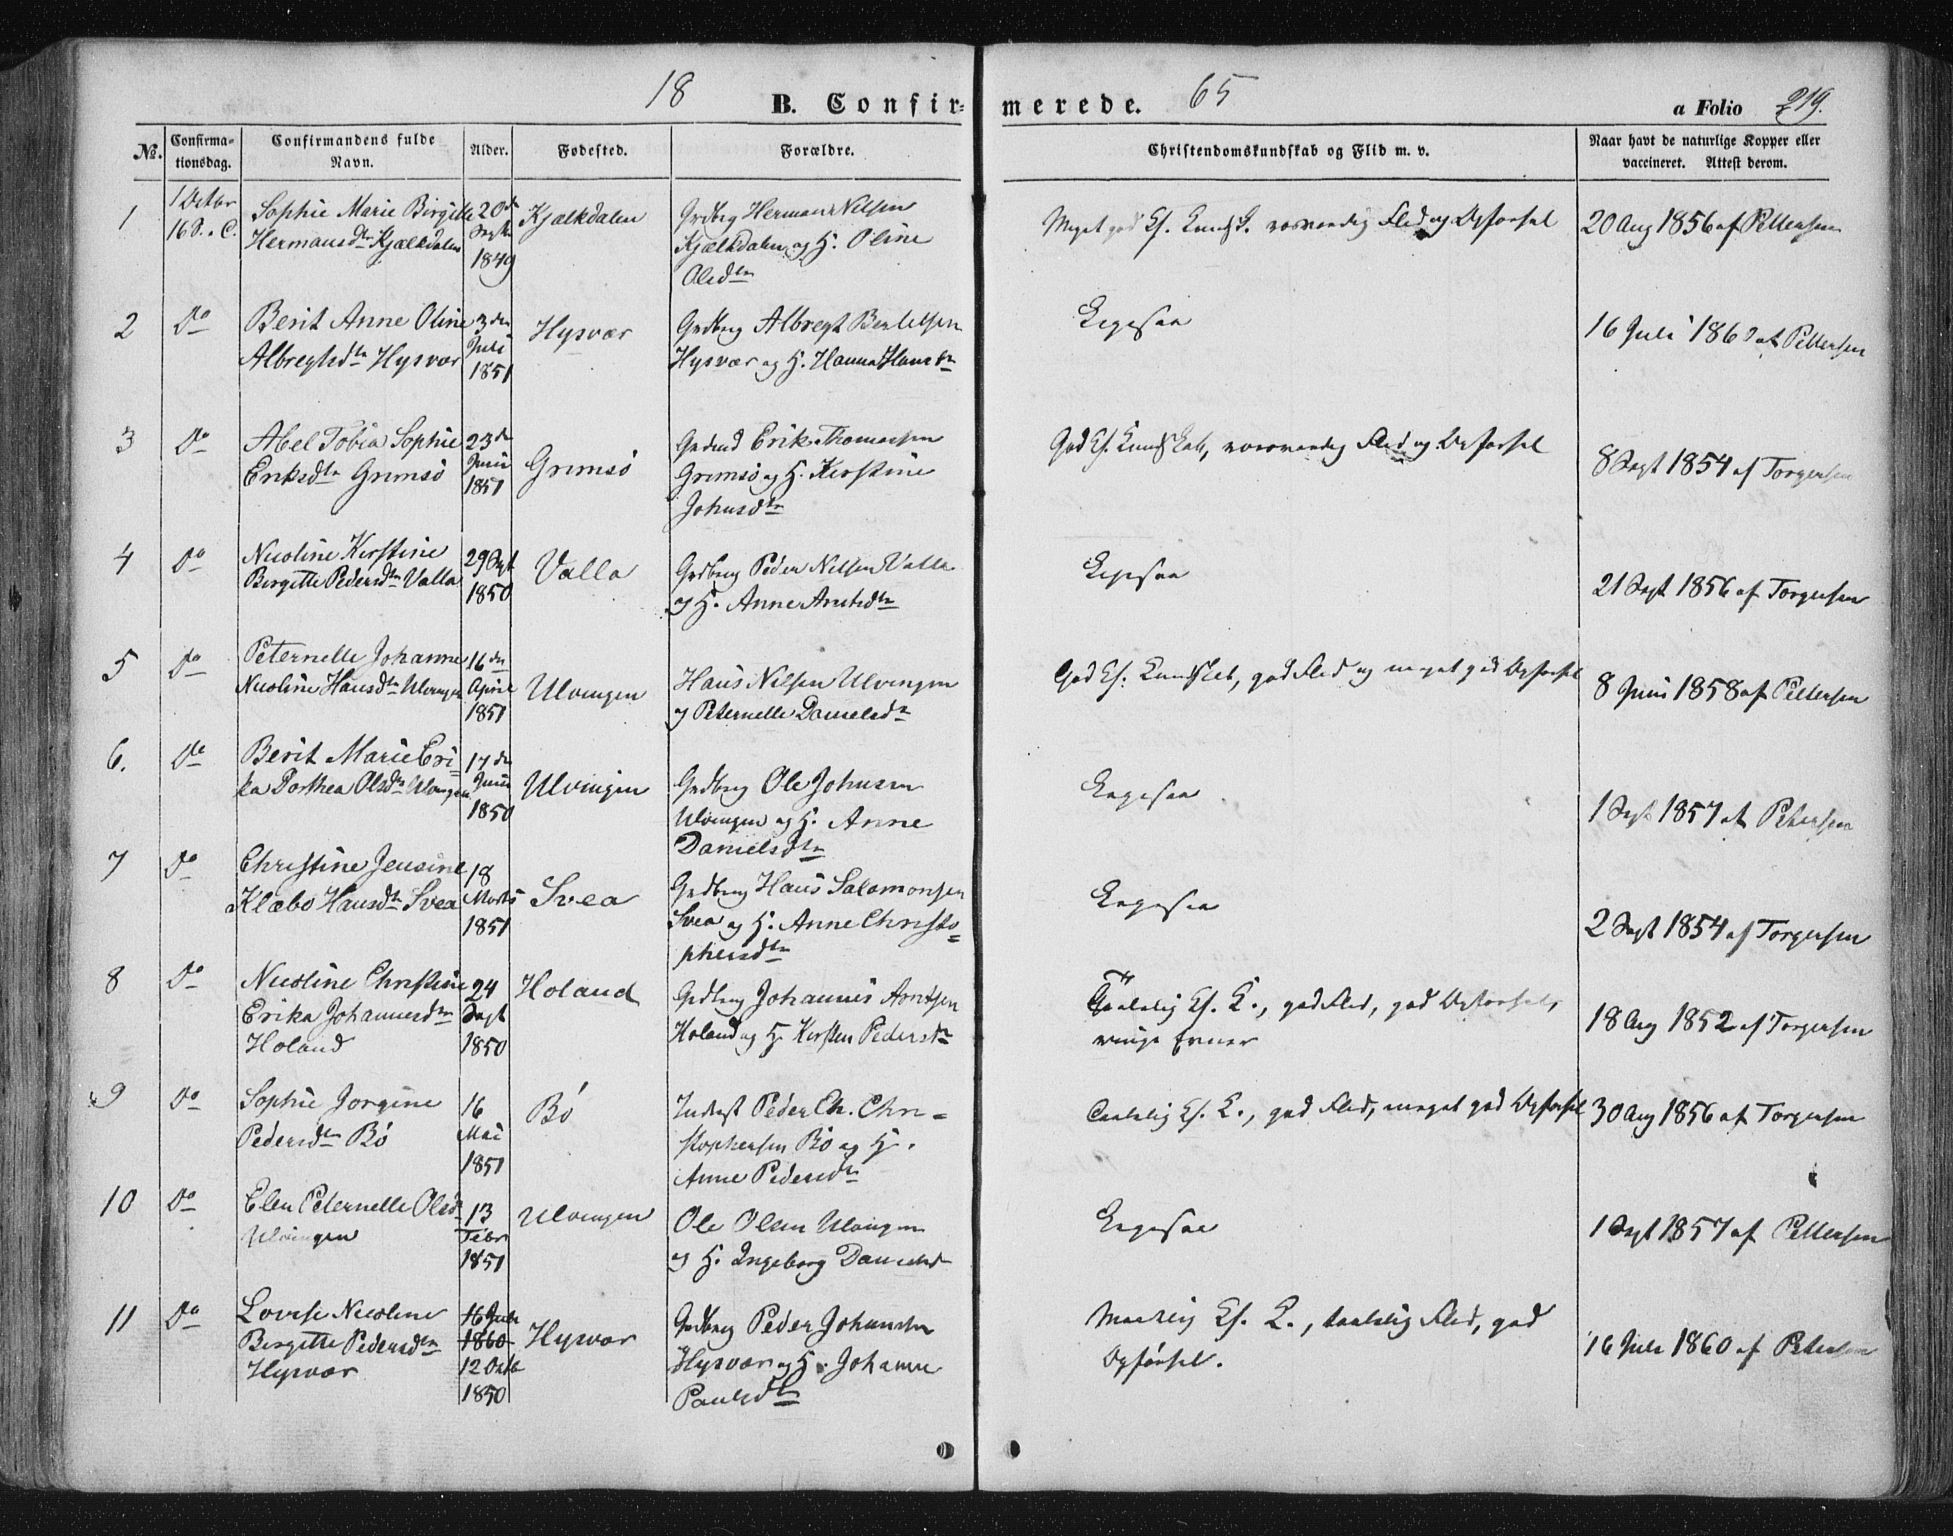 18 65
B. Confir= merede.
a Folio 219.
No.
Confirma=
tionsdag.
Confirmandens fulde
Navn.
Alder.
Fødested.
Forældre.
Christendomskundskab og Flid m. v.
Naar havt de naturlige Kopper eller
vaccineret. Attest derom.
1
1 Octbr
16 S. . C.
Sophie Marie Birgitte
Hermansdtr Kjælkdalen
20de
Septbr
1849
Kjælkdalen
Grdbrg Herman Nilsen
Kjælkdalen og H. Oline
Olsdtr
Meget god Ch. Kundsk. rosværdig Flid og Opførsel
20 Aug 1856 af Pettersen
2
Do
Berit Anne Oline
Albregtsdtr Hysvær
3die
Juli
1851
Hysvær
Grdbrg Albregt Bertelsen
Hysvær og H. Hanna Hansdtr
Ligesaa
16 Juli 1860 af Pettersen
3
Do
Abel Tobia Sophie
Eriksdtr Grimsø
23de
Juni
1851
Grimsø
Erik Thomassen
Grimsø og H. Kirstine
Johnsdtr
God Ch. Kundskab, rosværdig Flid og Opførsel
8 Sept 1854 af Torgersen
4
Do
Nicoline Kirstine
Birgitte Pedersdtr Valla
29 Sept
1850
Valla
Grdbrg Peder Nilsen Valla
og H. Anne Arntsdtr
Ligesaa
21 Sept 1856 af Torgersen
5
Do
Peternelle Johanne
Nicoline Hansdtr Ulvingen
16de
April
1851
Ulvingen
Hans Nilsen Ulvingen
og Peternelle Danielsdtr
God Ch. Kundskab, god Flid og meget god Opførsel
8 Juni 1858 af Pettersen
6.
Do
Berit Marie Eri=
ka Dorthea Olsdtr Ulvingen
17de
Juni
1850
Ulvingen
Grdbrg Ole Johnsen
Ulvingen og H. Anne
Danielsdtr
Ligesaa
1 Sept 1857 af Petersen
7
Do
Christine Jensine
Klæbo Hansdtr Svea
18
Marts
1851
Svea
Grdbrg Hans Salamonsen
Svea og H. Anne Christo=
phersdtr
Ligesaa
2 Sept 1854 af Torgersen
8
Do
Nicoline Christine
Erika Johannesdtr
Holand
24
Sept
1850
Holand
Grdbrg Johannes Arntsen
Holand og H. Kirsten Pedersdtr
Taalelig Ch. K., god Flid, god Opførsel,
ringe Evner
18 Aug 1852 af Torgersen
9
Do
Sophie Jorgine
Pedersdtr Bø
16
Mai
1851
Bø
Inderst Peder Ch. Chri=
stophersen Bø og H.
Anne Pedersdtr
Taalelig Ch. K., god Flid, meget god Opførsel
30 Aug 1856 af Torgersen
10
Do
Elen Peternelle Olsd
Ulvingen
13
Febr
1851
Ulvingen
Ole Olsen Ulvingen
og H. Ingeborg Danielsd
Ligesaa
1 Sept 1857 af Pettersen
11
Do
Lovise Nicoline
Birgitte Pedersdtr
Hysvær
16 Juli
1860
12 Octb
1850
Hysvær
Grdbrg Peder Johansen
Hysvær og H. Johanne
Paulsdtr
Maadelig Ch. K., taalelig Flid, god
Opførsel.
16 Juli 1860 af Petersen